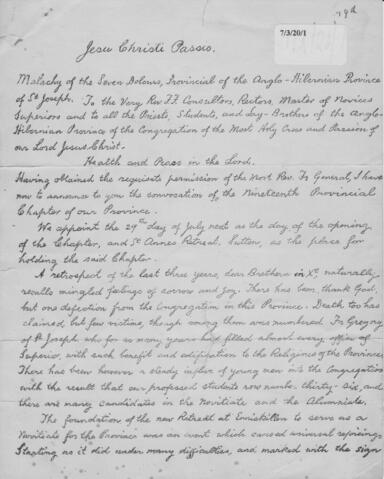 19th
7/3/20/1
Jesu Christi Passio.
Malachy of the Seven Dolours, Provincial of the Anglo-Hibernian Province
of St Joseph. To the Very Rev. FF. Consultors, Rectors, Master of Novices
Superiors and to all the Priests, Students, and Lay-Brothers of the Anglo-
Hibernian Province of the Congregation of the Most Holy Cross and Passion of
our Lord Jesus Christ.
Health and Peace in the Lord.
Having obtained the requisite permission of the Most Rev. Fr General, I have
now to announce to you the convocation of the Nineteenth Provincial
Chapter of our Province.
We appoint the 29th day of July next as the day of the opening
of the Chapter, and St Annes Retreat, Sutton, as the place for
holding the said Chapter.
A retrospect of the last three years, dear Brethren in Xt, naturally
recalls mingled feelings of sorrow and joy. There has been, thank God,
but one defection from the Congregation in this Province. Death too has
claimed but few victims, though among them was numbered Fr Gregory
of St Joseph, who for so many years had filled almost every office of
Superior, with such benefit and edification to the Religious of the Province.
There has been however a steady influx of young men into the Congregation
with the result that our professed students now number thirty-six, and
there are many candidates in the Novitiate and the Alumniate.
The foundation of the new Retreat at Enniskillen to serve as a
Novitiate for the Province was an event which caused universal rejoicing.
Starting as it did under many difficulties, and marked with the sign